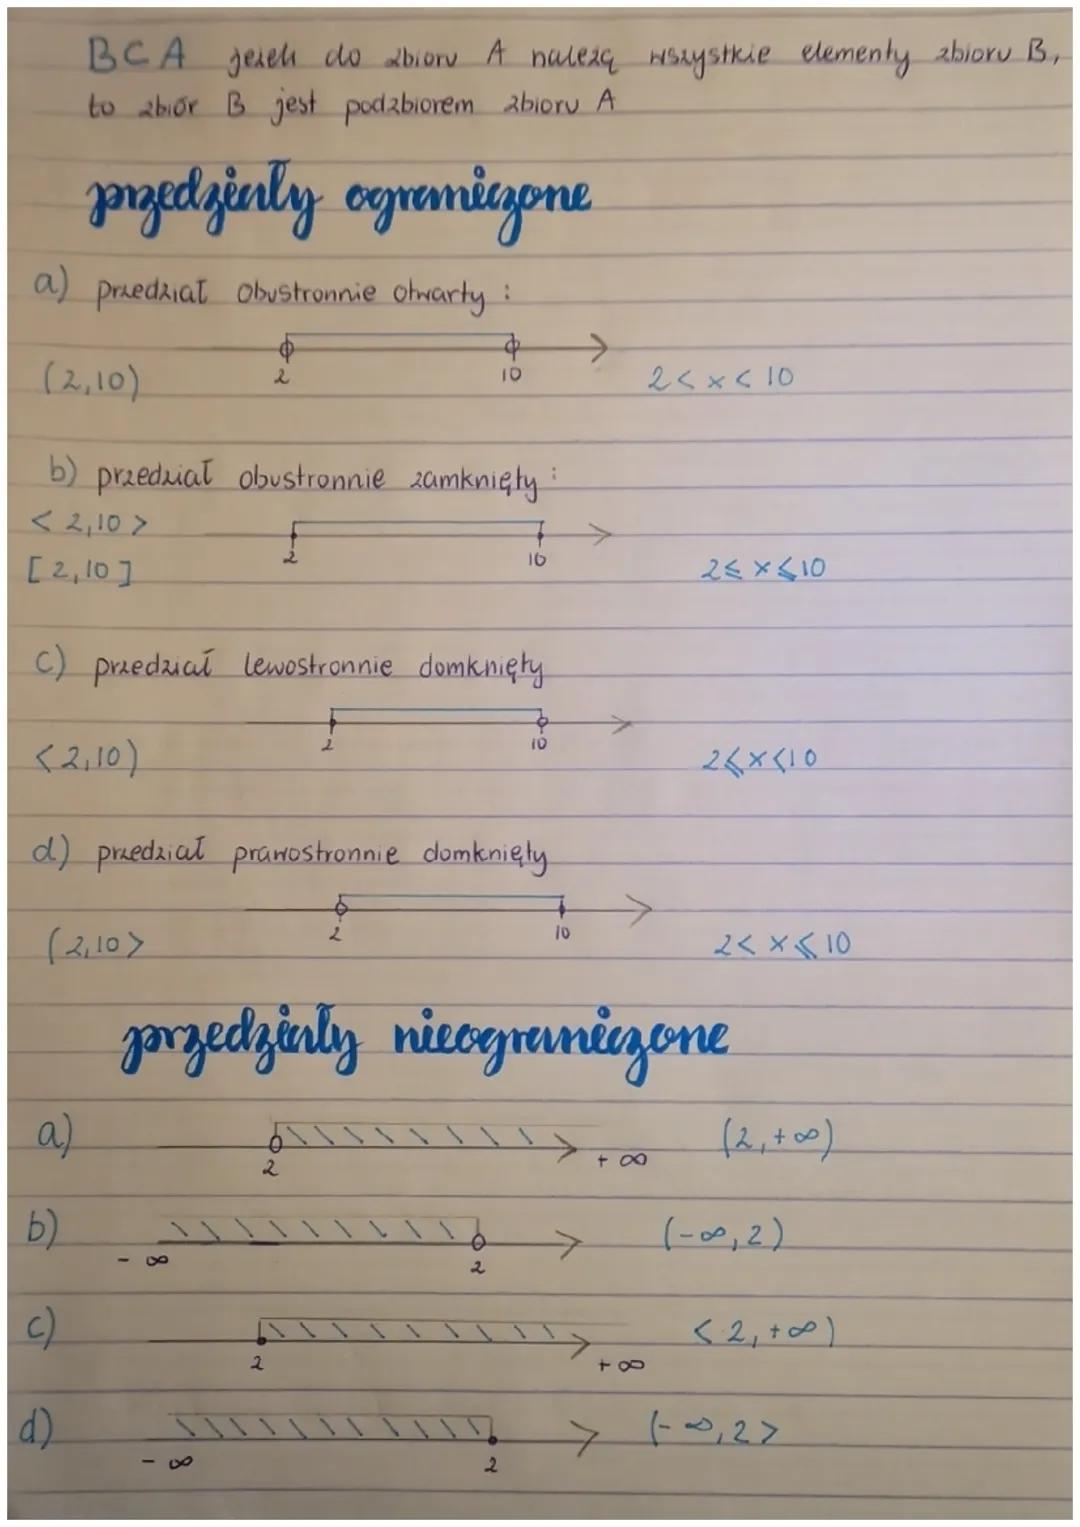 B⊂A jeżeli do zbioru A należą wszystkie elementy zbioru B,
to zbiór B jest podzbiorem zbioru A
przedziały ograniczone
a) przedział obustronnie otwarty :
2 10
(2,10) 2 < x < 10
b) przedział obustronnie zamknięty :
< 2,10 >
2 10
[ 2,10 ] 2 ⩽ x ⩽ 10
c) przedział lewostronnie domknięty
2 10
< 2,10 ) 2 ⩽ x < 10
d) przedział prawostronnie domknięty
2 10
( 2,10 > 2 < x ⩽ 10
przedziały nieograniczone
a) 2 + ∞ (2, +∞)
b) - ∞ 2 (-∞, 2)
c) 2 +∞ < 2, +∞)
d) - ∞ 2 (-∞, 2 >